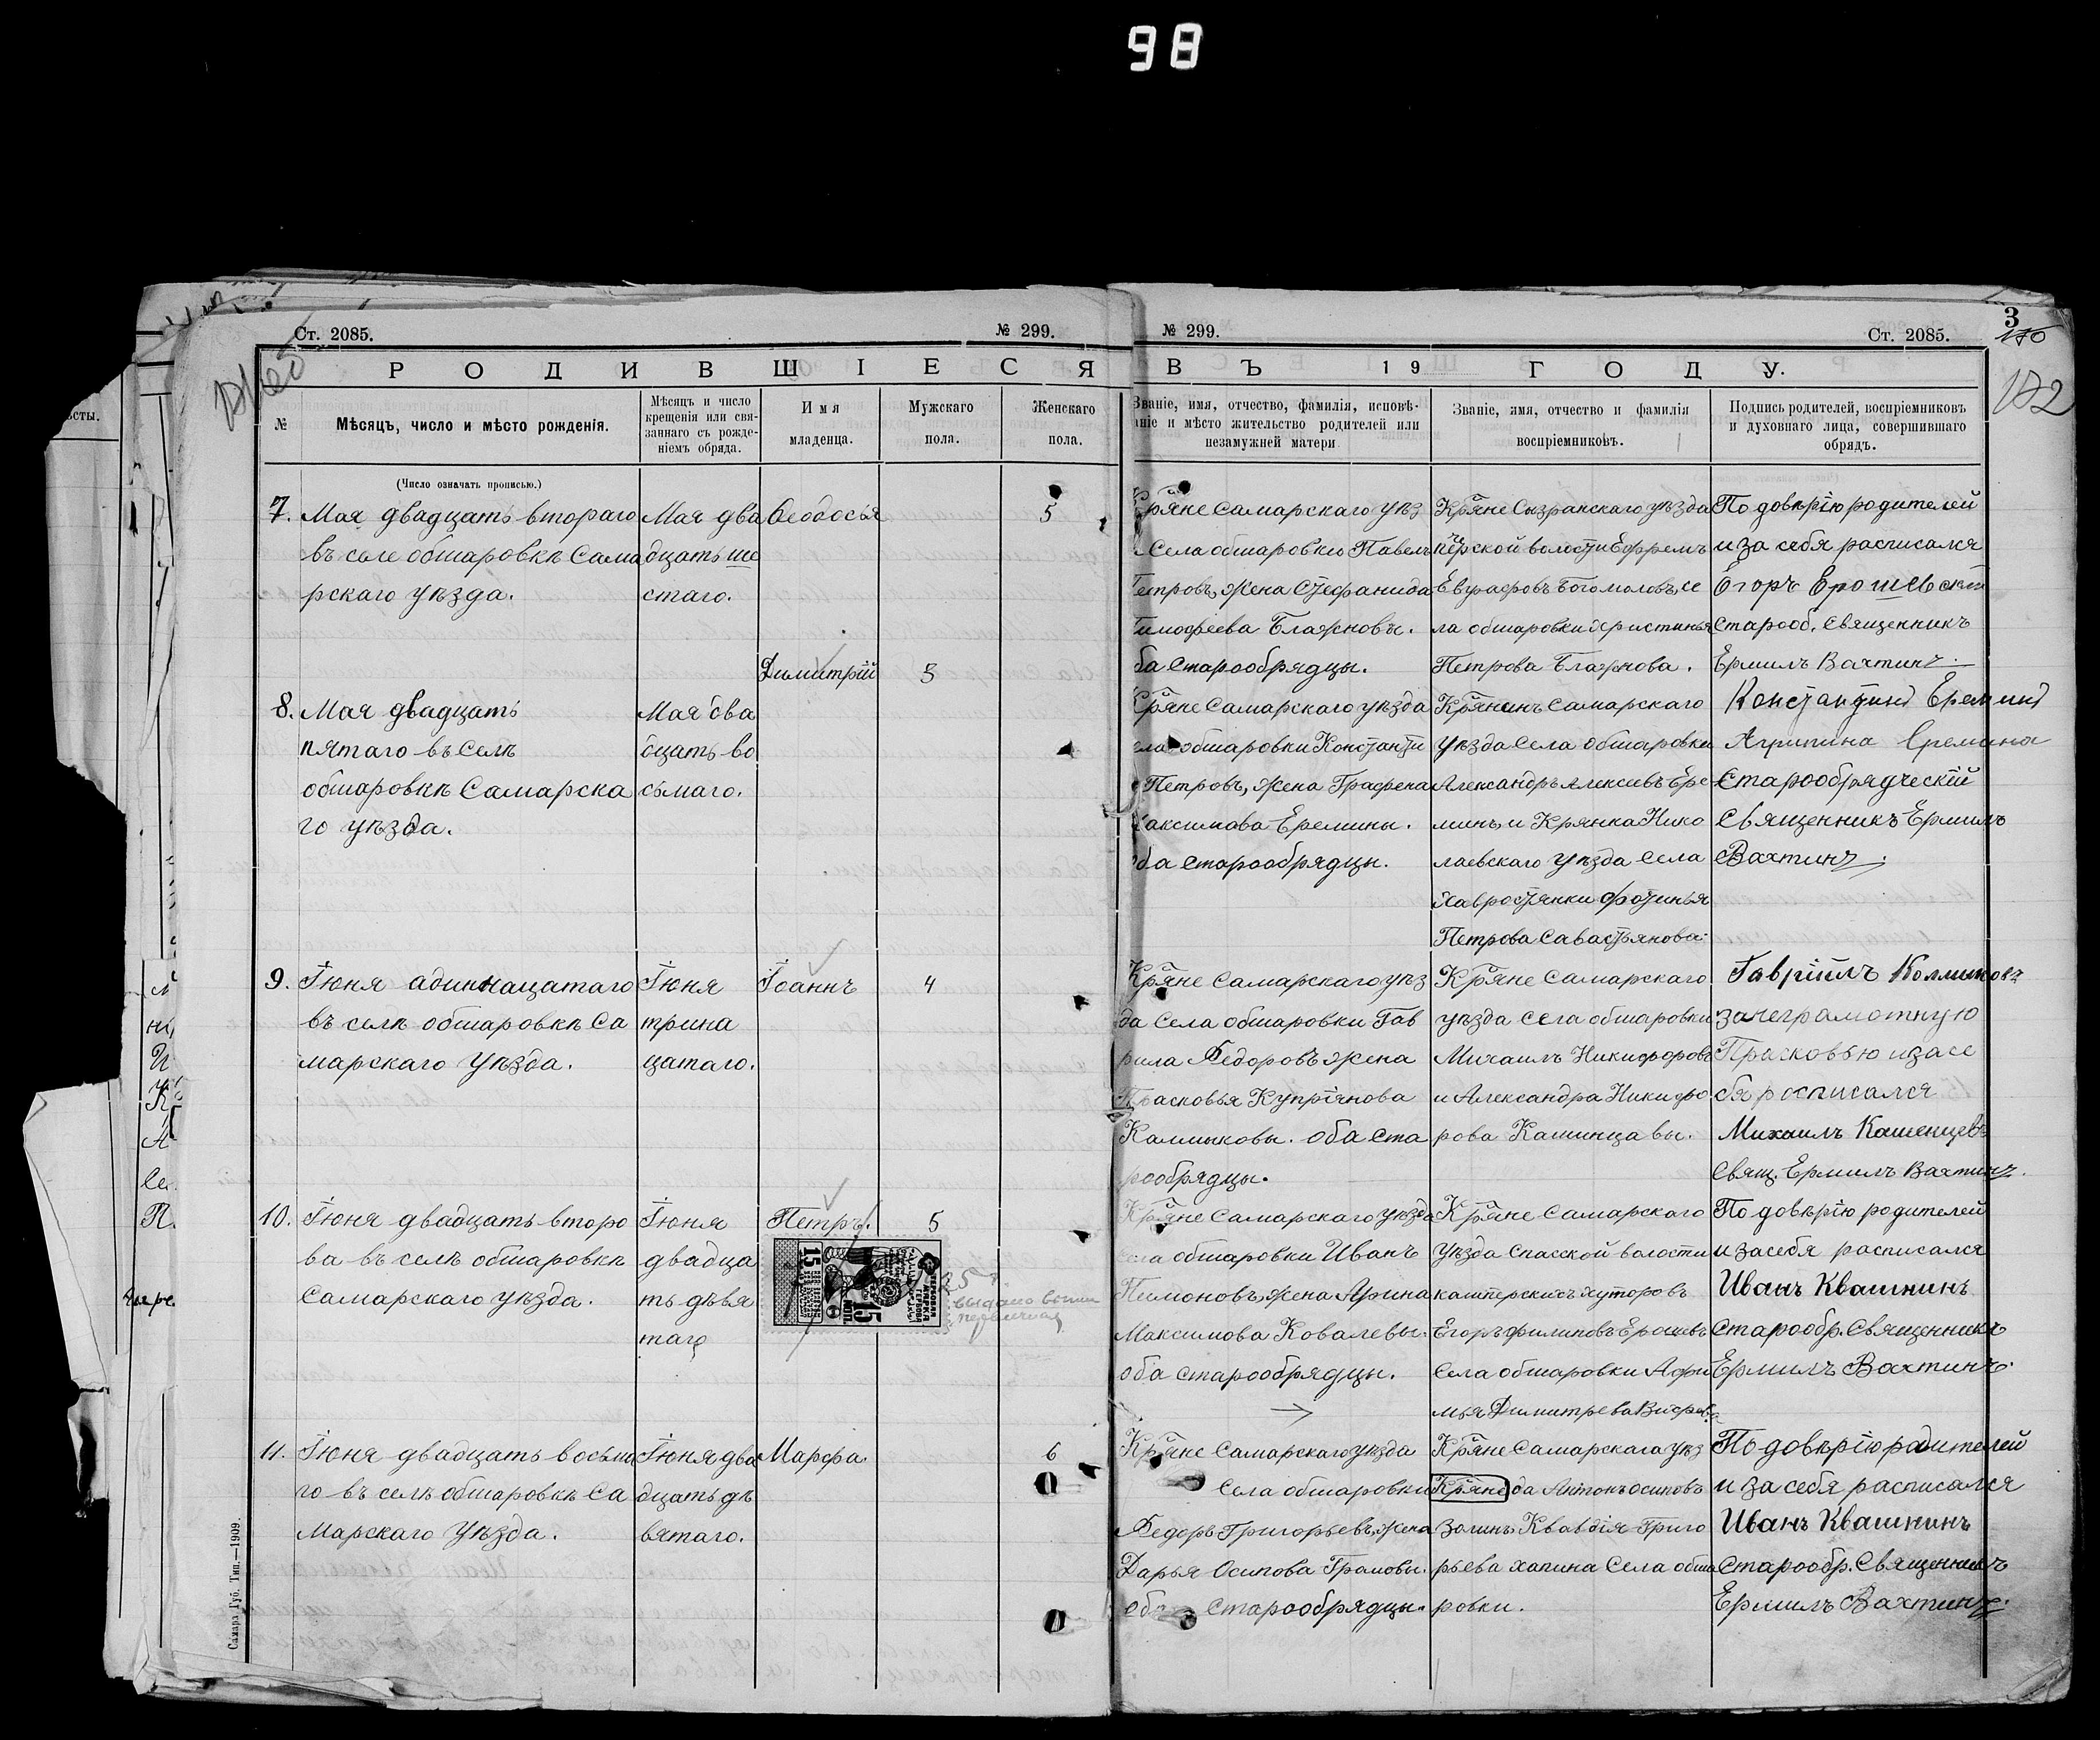 98
Ст. 2085.
№ 299.
№ 299.
Ст. 2085.
3
176
172
РОДИВШІЕСЯ
ВЪ 19 ГОДУ.
№
Мѣсяцъ, число и мѣсто рожденія.
Мѣсяцъ и число
крещенія или свя-
заннаго съ рожде-
ніемъ обряда.
Имя
младенца.
Мужскаго
пола.
Женскаго
пола.
Званіе, имя, отчество, фамилія, исповѣ-
аніе и мѣсто жительство родителей или
незамужней матери
Званіе, имя, отчество и фамилія
воспріемниковъ.
Подпись родителей, воспріемниковъ
и духовнаго лица, совершившаго
обрядъ.
(Число означать прописью.)
7.
Мая двадцать втораго
въ селе обшаровкѣ Сама
рскаго уѣзда.
Мая два
дцать ше
стаго.
Ѳеодосья
5
Кр͠яне самарскаго уѣз
Села обшаровки Павелъ
Петровъ, жена Стефанида
Тимофеева Блажновы.
ба старообрядцы.
Кр͠яне Сызранскаго уѣзда
Ефремъ
Евграфовъ Богомоловъ, се
ла обшаровки христинья
Петрова Блажнова.
По довѣрію родителей
и за себя расписался
Егоръ Ерошевскій
Старооб. Священникъ
Ермилъ Вахтинъ.
8.
Мая двадцать
пятаго въ Селѣ
обшаровкѣ Самарска
го уѣзда.
Мая два
дцать во
сьмаго.
Димитрій
3
Кр͠яне Самарскаго уѣзда
ела обшаровки Константи
Петровъ, жена Графена
аксимова Еремины.
ба старообрядцы.
Кр͠янинъ Самарскаго
уѣзда Села обшаровки
Александръ Алексѣвъ Ере
минъ, и Крянка Нико
лаевскаго уѣзда Села
Хавростянки Фотинья
Петрова Савастьянова.
Константинъ Ереминъ
Агрипина Еремина
Старообрядческій
Священникъ Ермилъ
Вахтинъ.
9.
Іюня адиннацатаго
въ селѣ обшаровкѣ Са
марскаго уѣзда.
Іюня
трина
цатаго.
Іоаннъ
4
Кр͠яне Самарскаго уѣз
да Села обшаровки Гав
рила Ѳедоровъ жена
Прасковья Купріянова
Калмыковы. оба ста
рообрядцы.
Кр͠яне Самарскаго
уѣзда села обшаровки
Михаилъ Никифоровъ
и Александра Никифо
рова Кашинцавы.
Гавріилъ Колмыковъ
за неграмотную
Прасковью и за се
бя росписался
Михаилъ Кашенцевъ
Свящ. Ермилъ Вахтинъ.
10.
Іюня двадцать второ
ва въ селѣ обшаровкѣ
Самарскаго уѣзда.
Іюня
двадца
ть девя
таго
Петръ.
5
15
15
КОП
ГЕРБОВАЯ
МАРКА
выдано
Кр͠яне Самарскаго уѣзда
села обшаровки Иванъ
Пимоновъ, жена Арина
Максимова Ковалевы.
оба старообрядцы.
Кр͠яне Самарскаго
уѣзда Спасской волости
камперскихъ хуторовъ
Егоръ Филиповъ Ерошевъ
Села обшаровки Афи
мья Димитрева
По довѣрію родителей
и за себя расписался
Иванъ Квашнинъ
Старообр. Священникъ
Ермилъ Вахтинъ.
11.
Іюня двадцать восьма
го въ селѣ обшаровкѣ Са
марскаго уѣзда.
Іюня два
дцать дѣ
вятаго.
Марфа.
6
Кр͠яне Самарскаго уѣзда
Села обшаровки
Ѳедоръ Григорьевъ, жена
Дарья Осипова Громовы.
оба старообрядцы.
Кр͠яне Самарскаго уѣз
Кр͠яне да Антонъ осиповъ
Григо
рьева хапина Села обша
ровки.
По довѣрію родителей
и за себя расписался
Иванъ Квашнинъ
Старообр. Священникъ
Ермилъ Вахтинъ.
Самара. Губ. Тип.—1909.